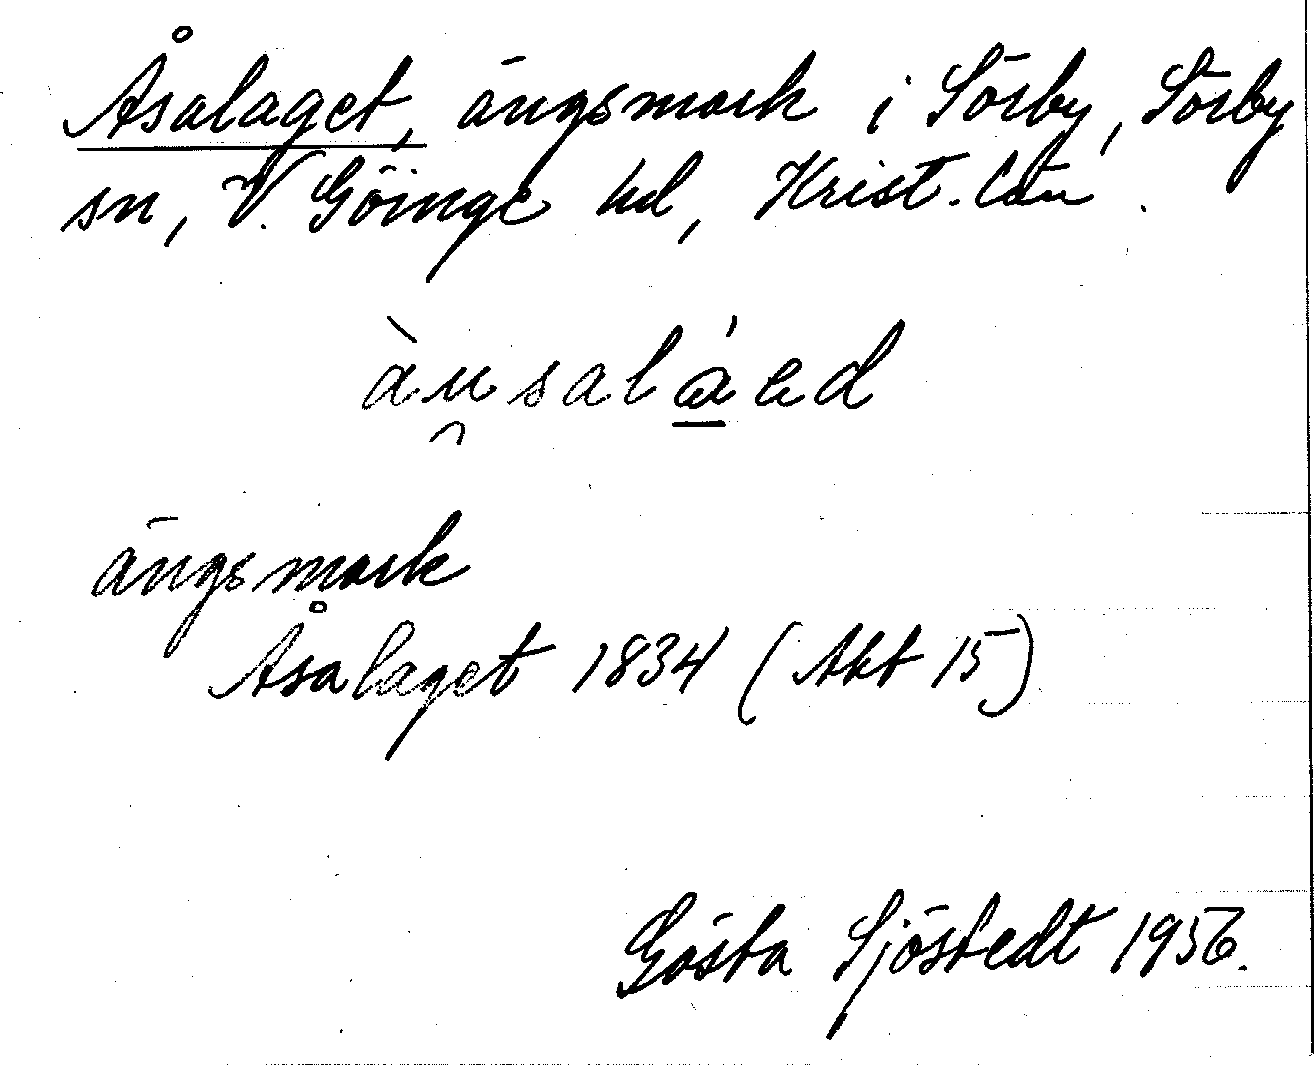 Åsalaget, ängsmark i Sörby, Sörby
sn, V. Göinge hd, Krist. län.
àu̯salá̱ed
ängsmark
Åsalaget 1834 (Akt 15)
Gösta Sjöstedt 1956.